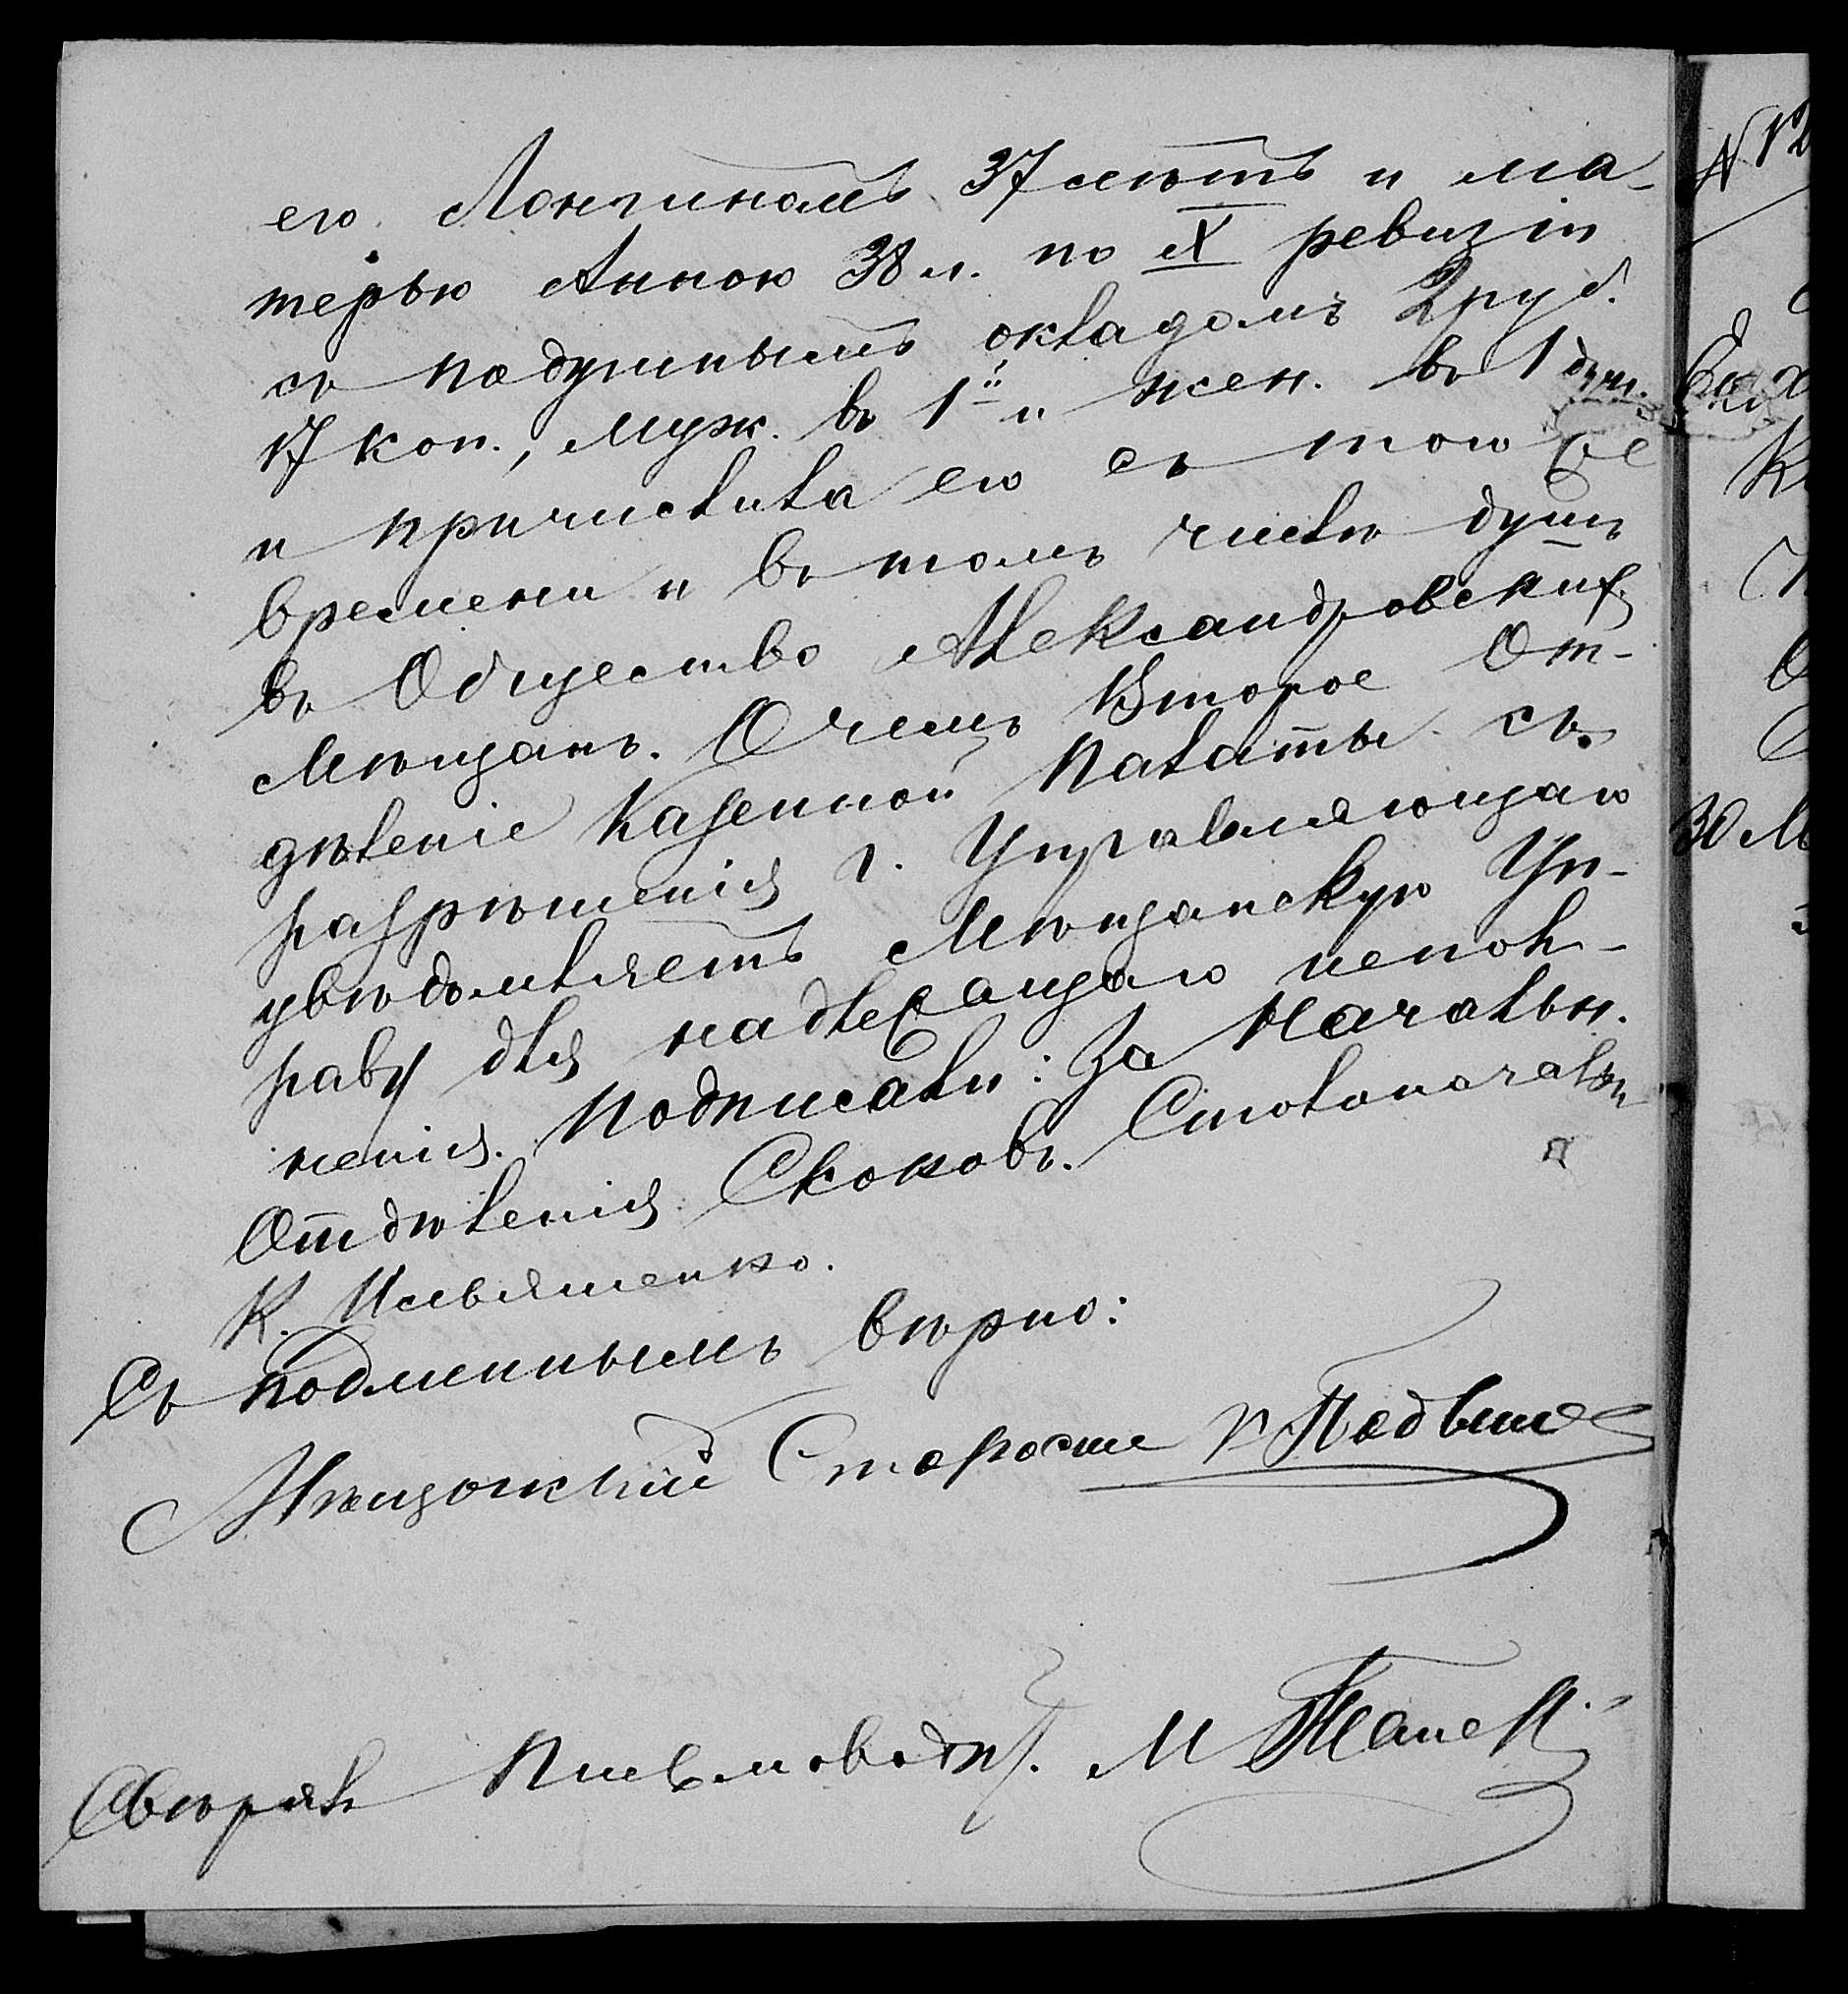 его Лонгиномъ 37 лѣтъ и ма-
терью Анною 38 л. по X ревизіи
съ подушнымъ окладомъ 2 руб.
17 коп., муж. въ 1й и жен. въ 1 душ.
и причислила его съ того же
времени и въ томъ числѣ душъ
въ Общество Александровскихъ
Мѣщанъ. О чемъ Второе От-
дѣленіе Казенной Палаты съ
разрѣшенія г. Управляющаго
увѣдомляетъ Мѣщанскую Уп-
раву для надлежащаго испол-
ненія. Подписали: За Начальн.
Отдѣленія Скоковъ. Столоначальн.
К. Ильяшенко.
Съ подлиннымъ вѣрно:
Мѣщанскій Староста
Свѣрялъ Письмоводит. М